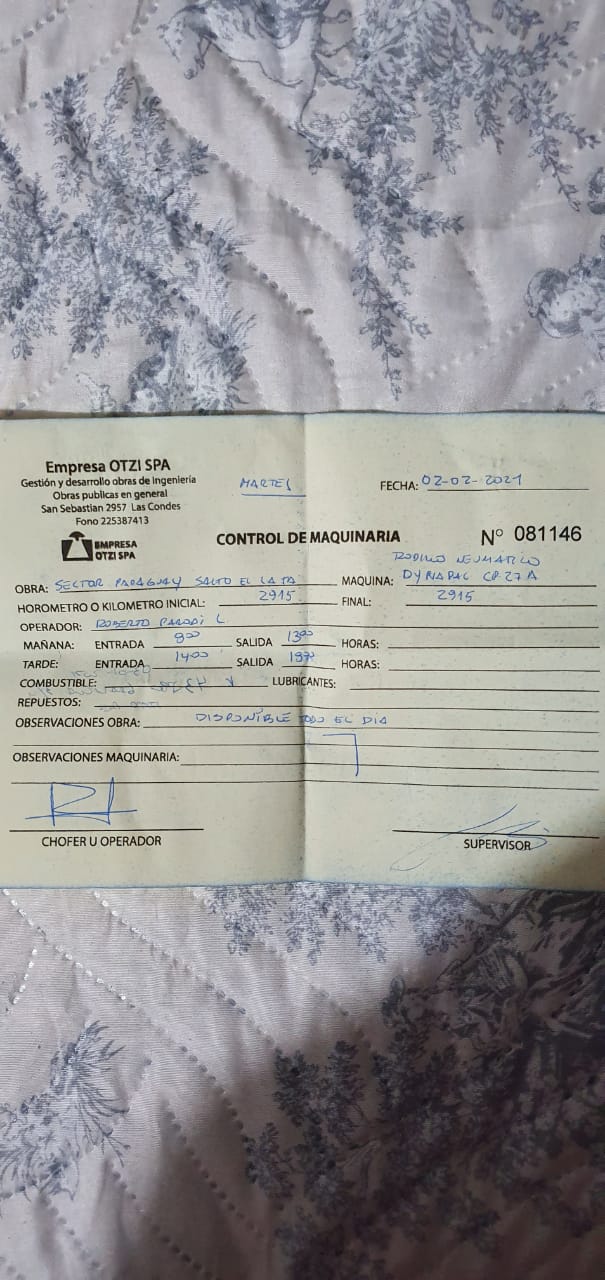 Empresa OTZI SPA
Gestión y desarrollo obras de Ingeniería
Obras publicas en general
San Sebastian 2957 Las Condes
Fono 225387413
EMPRESA
OTZI SPA
MARTES
FECHA: 02-02-2021
CONTROL DE MAQUINARIA
Nº 081146
RODILLO NEUMATICO
OBRA: SECTOR PARAGUAY SALTO EL LAJA MAQUINA: DYNAPAC CP 27 A
HOROMETRO O KILOMETRO INICIAL: 2915 FINAL: 2915
OPERADOR: ROBERTO PARODI L
MAÑANA: ENTRADA 800 SALIDA 1300 HORAS:
TARDE: ENTRADA 1400 SALIDA HORAS:
COMBUSTIBLE: LUBRICANTES:
REPUESTOS:
OBSERVACIONES OBRA: DISPONIBLE TODO EL DIA
OBSERVACIONES MAQUINARIA:
CHOFER U OPERADOR
SUPERVISOR